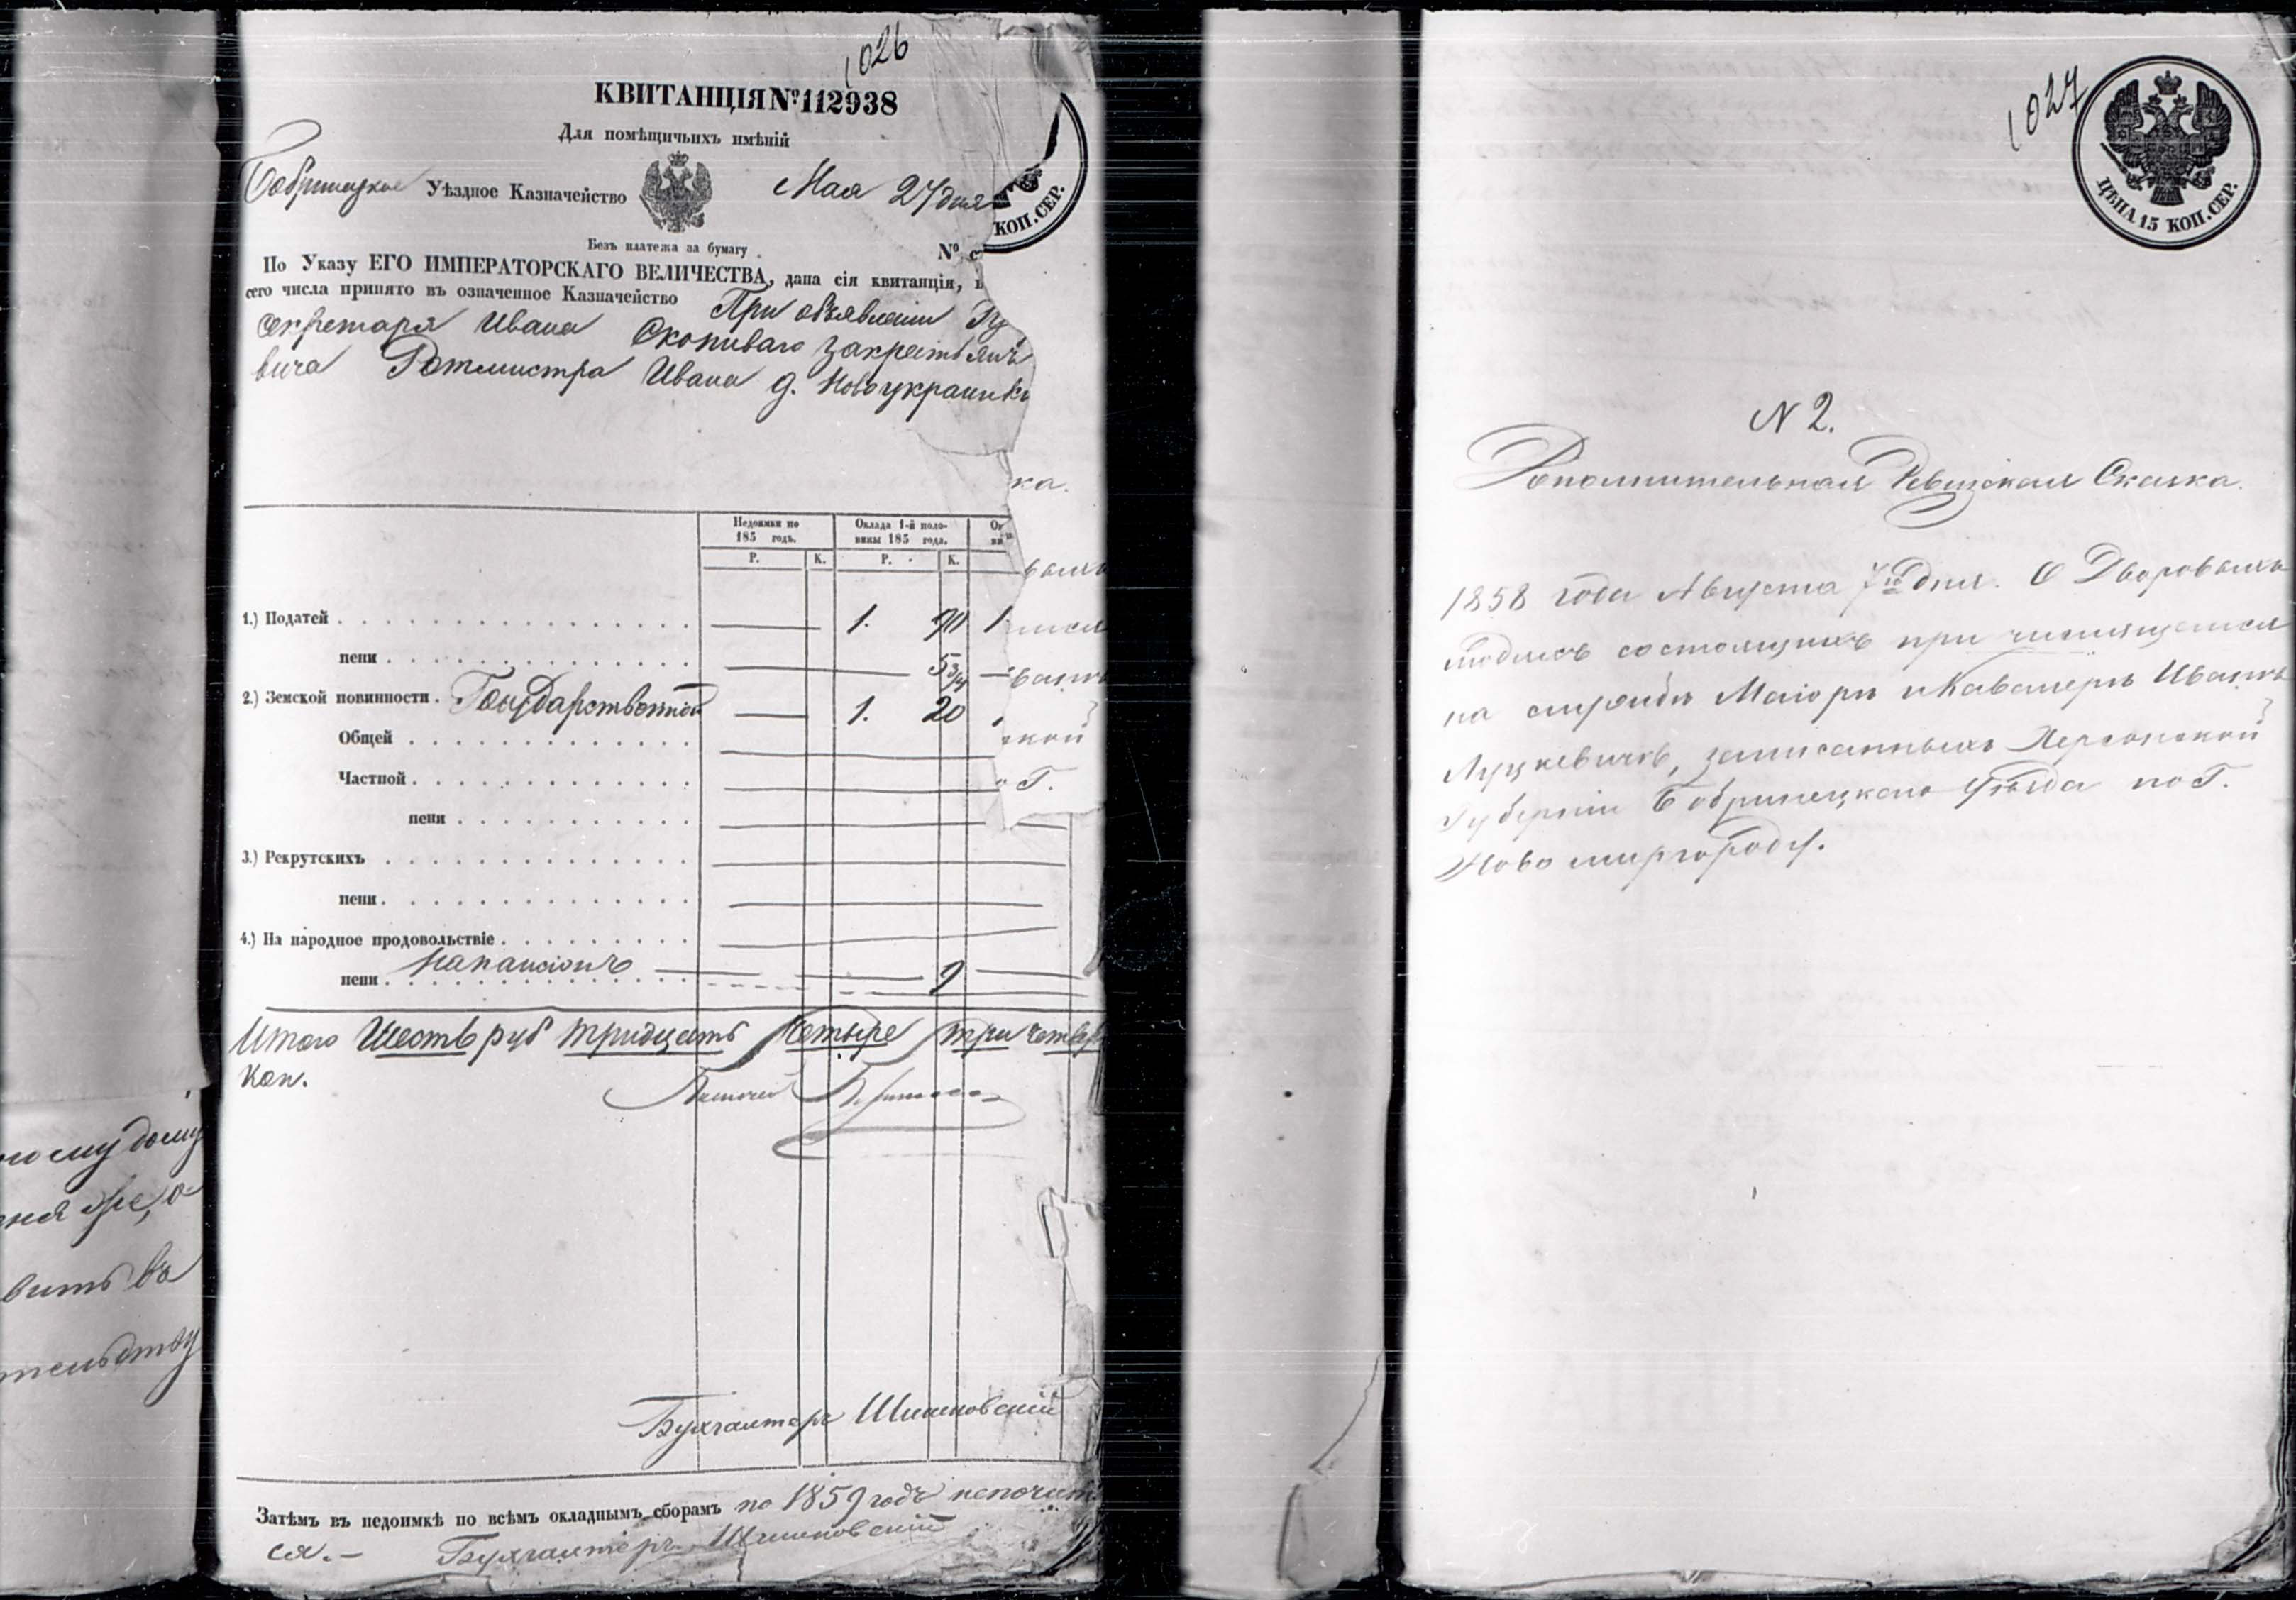 номудому
же, а
вить въ
тельству
1026
КВИТАНЦІЯ № 112938
Для помѣщичьихъ имѣній
Бобринецкое Уѣздное Казначейство Мая 27 дня
КОП. СЕР.
Безъ платежа за бумагу . № с
По Указу ЕГО ИМПЕРАТОРСКАГО ВЕЛИЧЕСТВА, дана сія квитанція,
сего числа принято въ означенное Казначейство При объявленіи
Секретаря Ивана закрестьянъ
вича Ротмистра Ивана д. Новоукраинк
ка.
Недоимки по 185 годъ.
Оклада 1-й половины 185 года.
Р. К. Р. К.
1.) Податей . 1. 90 1
пени . 5 3/4
2.) Земской повинности . Государственной 1. 20
Общей
Частной
пени
3.) Рекрутскихъ
пени
4.) На народное продовольствіе
пени 9
Итого Шесть руб тридцать Четыре три четвер
Коп.
Бухгалтеръ
Затѣмъ въ недоимкѣ по всѣмъ окладнымъ сборамъ по 1859 годъ непочит
ся. – Бухгалтеръ
вымъ
кой
Г.
1027
ЦѢНА 15 КОП. СЕР.
N 2.
Дополнительная Ревизская Сказка.
1858 года Августа 7го дня. О Дворовыхъ
людяхъ состоящихъ при числящемся
на службѣ Маіорѣ и Кавалерѣ Иванѣ
Луцкевичѣ, записанныхъ Херсонской
Губерніи Бобринецкаго Уѣзда по Г.
Ново миргороду.